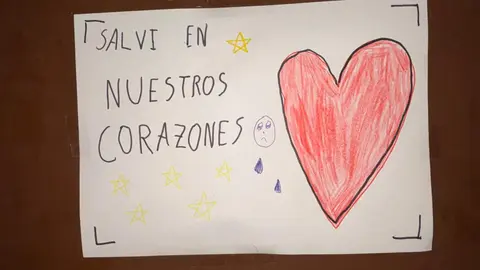 SALVI EN
NUESTROS
CORAZONES